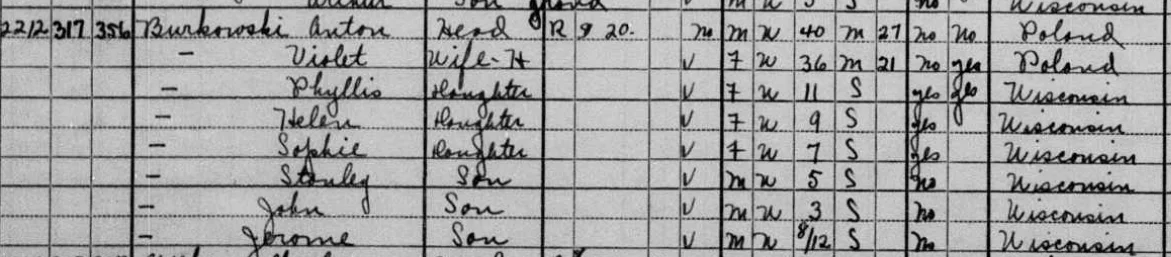 Wisconsin
2212 317 356 Burkowski Anton Head R 20. no m w 40 m 27 no no Poland
— Violet Wife-H V F w 36 m 21 no yes Poland
— Phyllis Daughter V F w 11 S yes yes Wisconsin
— Helen Daughter V F w 9 S yes Wisconsin
— Sophie Daughter V F w 7 S yes Wisconsin
— Stanley Son V m w 5 S no Wisconsin
— John Son V m w 3 S no Wisconsin
— Jerome Son V m w 8/12 S no Wisconsin